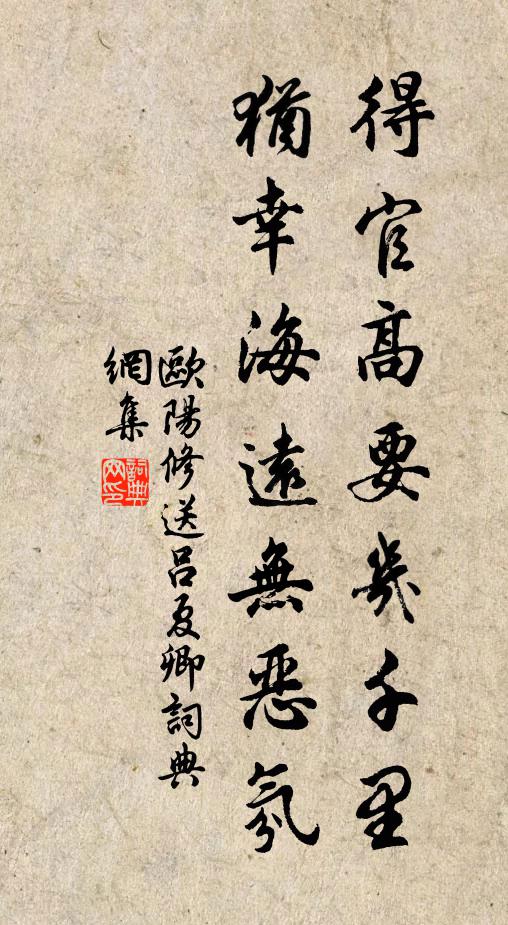 得官高要幾千里
猶幸海遠無惡氛
歐陽修送呂夏卿詞典
網集
詞典網印